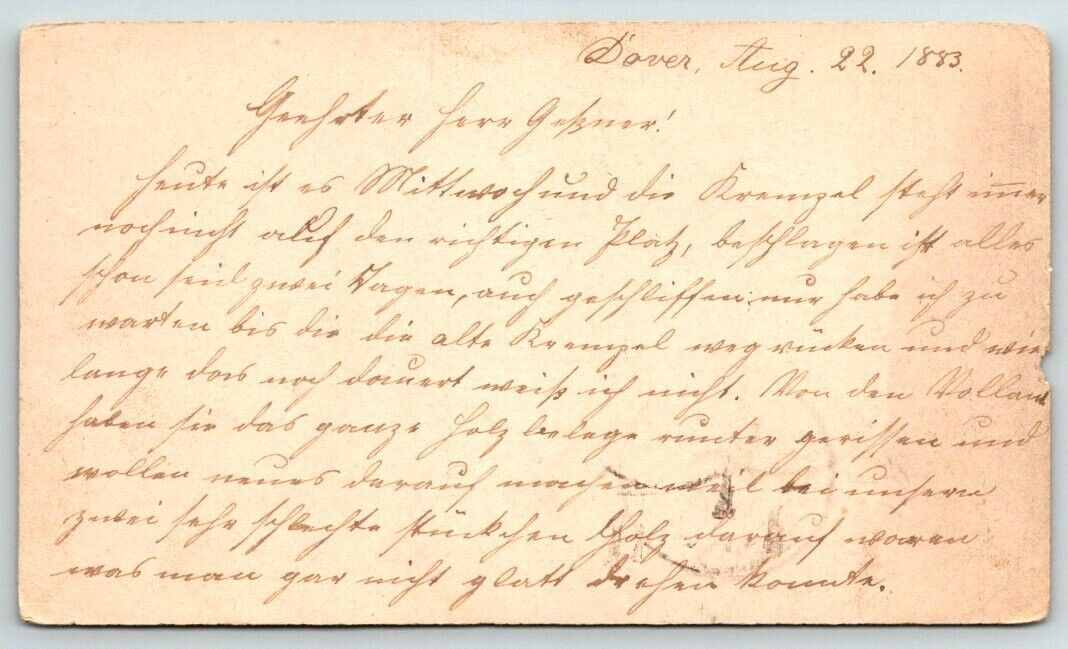 Dover, Aug. 22. 1883.
Geehrter Herr Geßner!
Heute ist es Mittwoch und die Krempel steht im̅er
noch nicht auf den richtigen Platz, beschlagen ist alles
schon seid zwei Tagen, auch geschliffen; nur habe ich zu
warten bis die die alte Krempel weg rücken und wie
lange das noch dauert weiß ich nicht. Von den
haben sie das ganze Holz belege runter gerissen und
wollen neues darauf machen weil bei unsern
zwei sehr schlechte stückchen Holz darauf waren
was man gar nicht glatt drehen konnte.